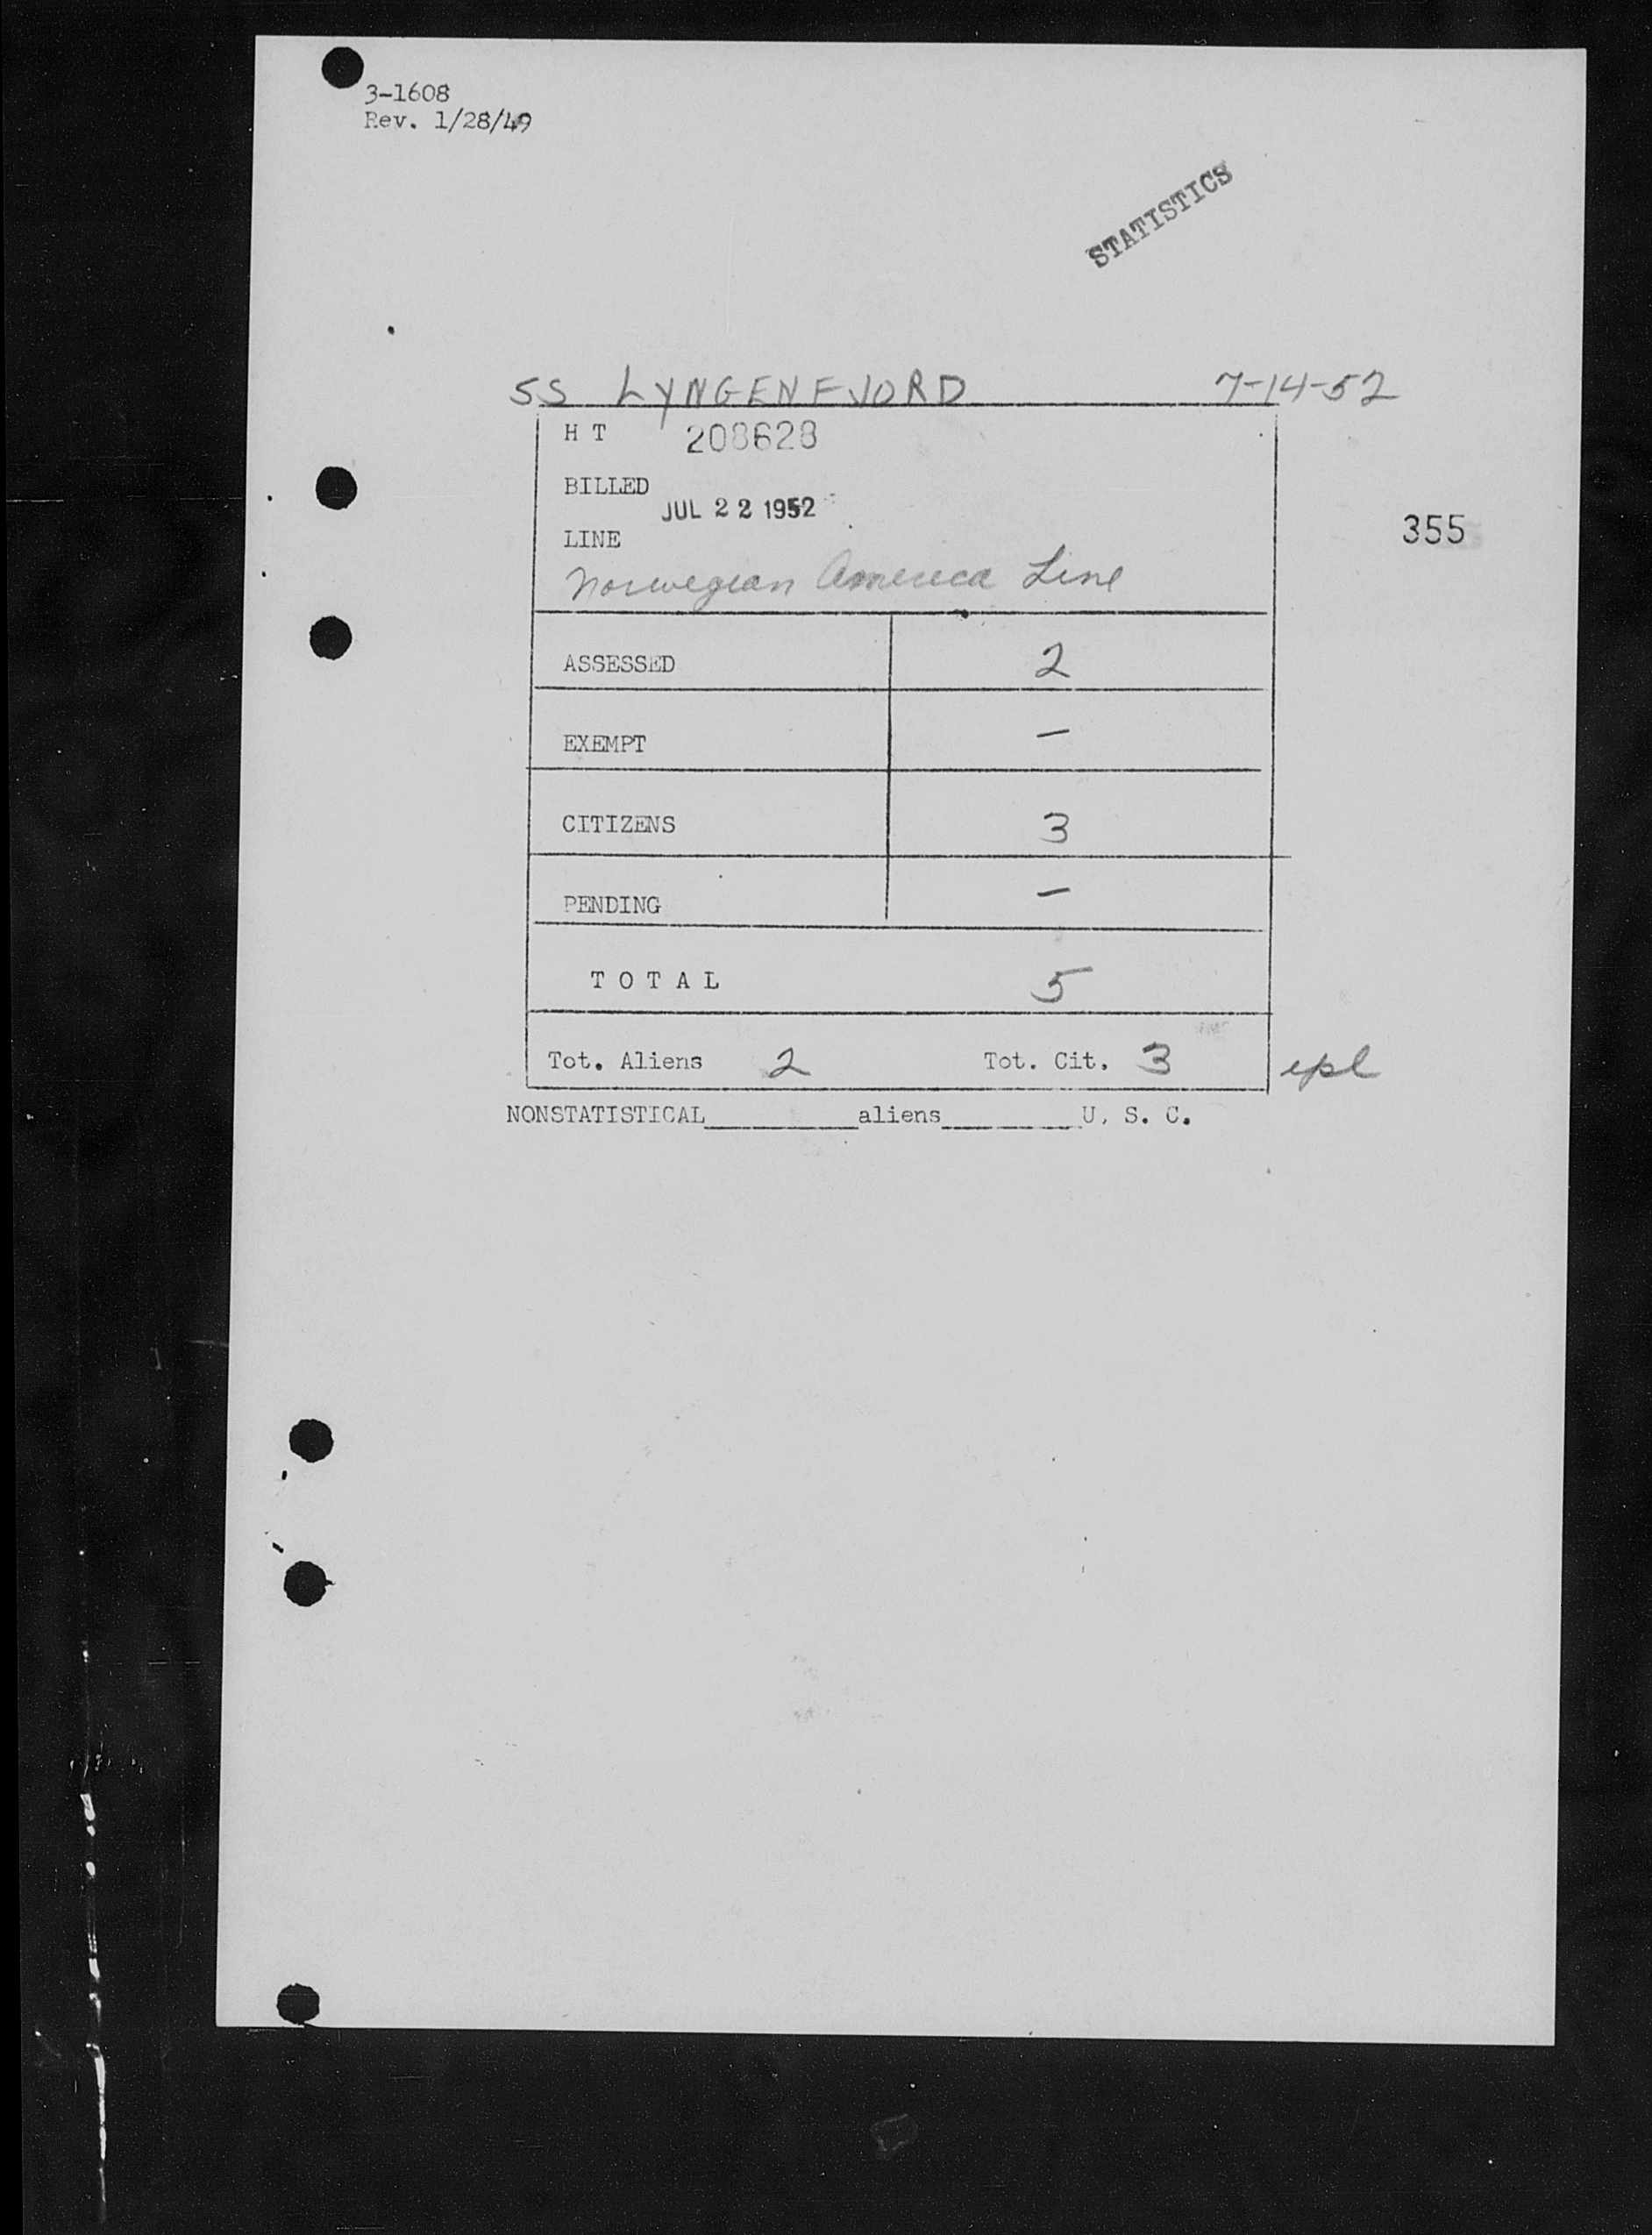 3-1608
Rev. 1/28/49
STATISTICS
SS LYNGENFJORD 7-14-52
H T 208628
BILLED
JUL 22 1952
355
LINE
Norwegian America Line
ASSESSED 2
EXEMPT —
CITIZENS 3
PENDING —
T O T A L 5
Tot. Aliens 2 Tot. Cit. 3 epl
NONSTATISTICAL__________aliens_________U. S. C.